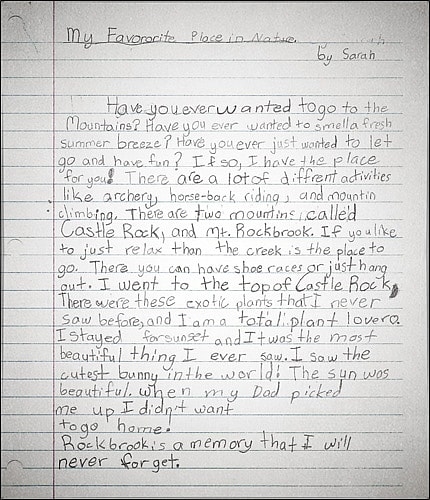 My Favororite Place in Nature.
by Sarah
Have you ever wanted to go to the
Mountains? Have you ever wanted to smell a fresh
summer breeze? Have you ever just wanted to let
go and have fun? If so, I have the place
for you! There are a lot of diffrent activities
like archery, horse-back riding, and mountin
climbing. There are two mountins, called
Castle Rock, and Mt. Rockbrook. If you like
to just relax than the creek is the place to
go. There you can have shoe races or just hang
out. I went to the top of Castle Rock,
There were these exotic plants that I never
saw before, and I am a total plant lover.
I stayed for sunset and It was the most
beautiful thing I ever saw. I saw the
cutest bunny in the world! The sun was
beautiful. when my Dad picked
me up I didn't want
to go home.
Rockbrook is a memory that I will
never forget.